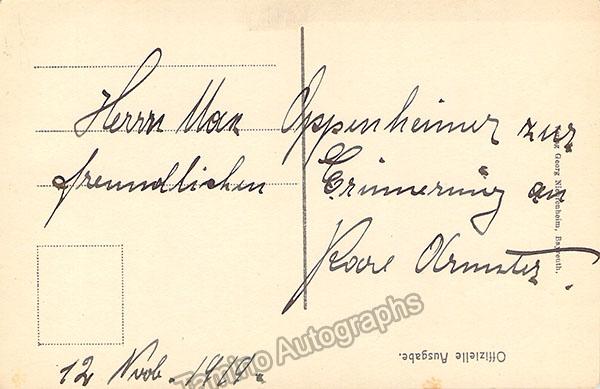 Herrn Max Oppenheimer zur
freundlichen Erinnerung an
Karl Armster.
12 Nov. 1919.
Offizielle Ausgabe.
Georg Niehrenheim, Bayreuth.
Tamino Autographs